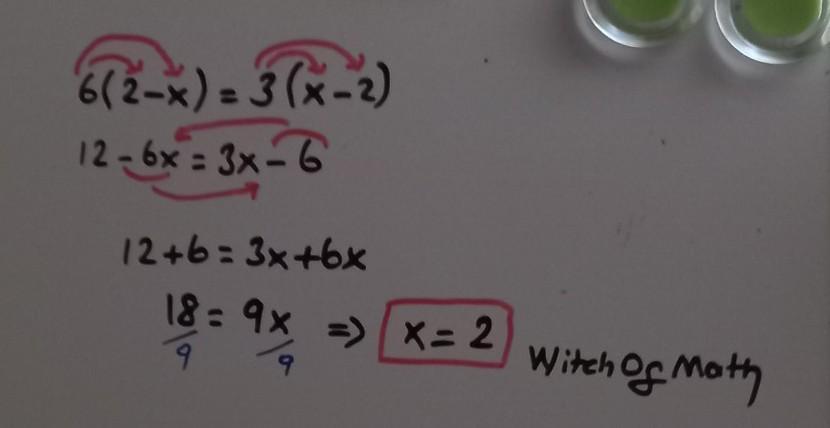 6(2-x) = 3(x-2)
12-6x = 3x-6
12+6 = 3x+6x
18/9 = 9x/9 => x=2
WitchOfMath